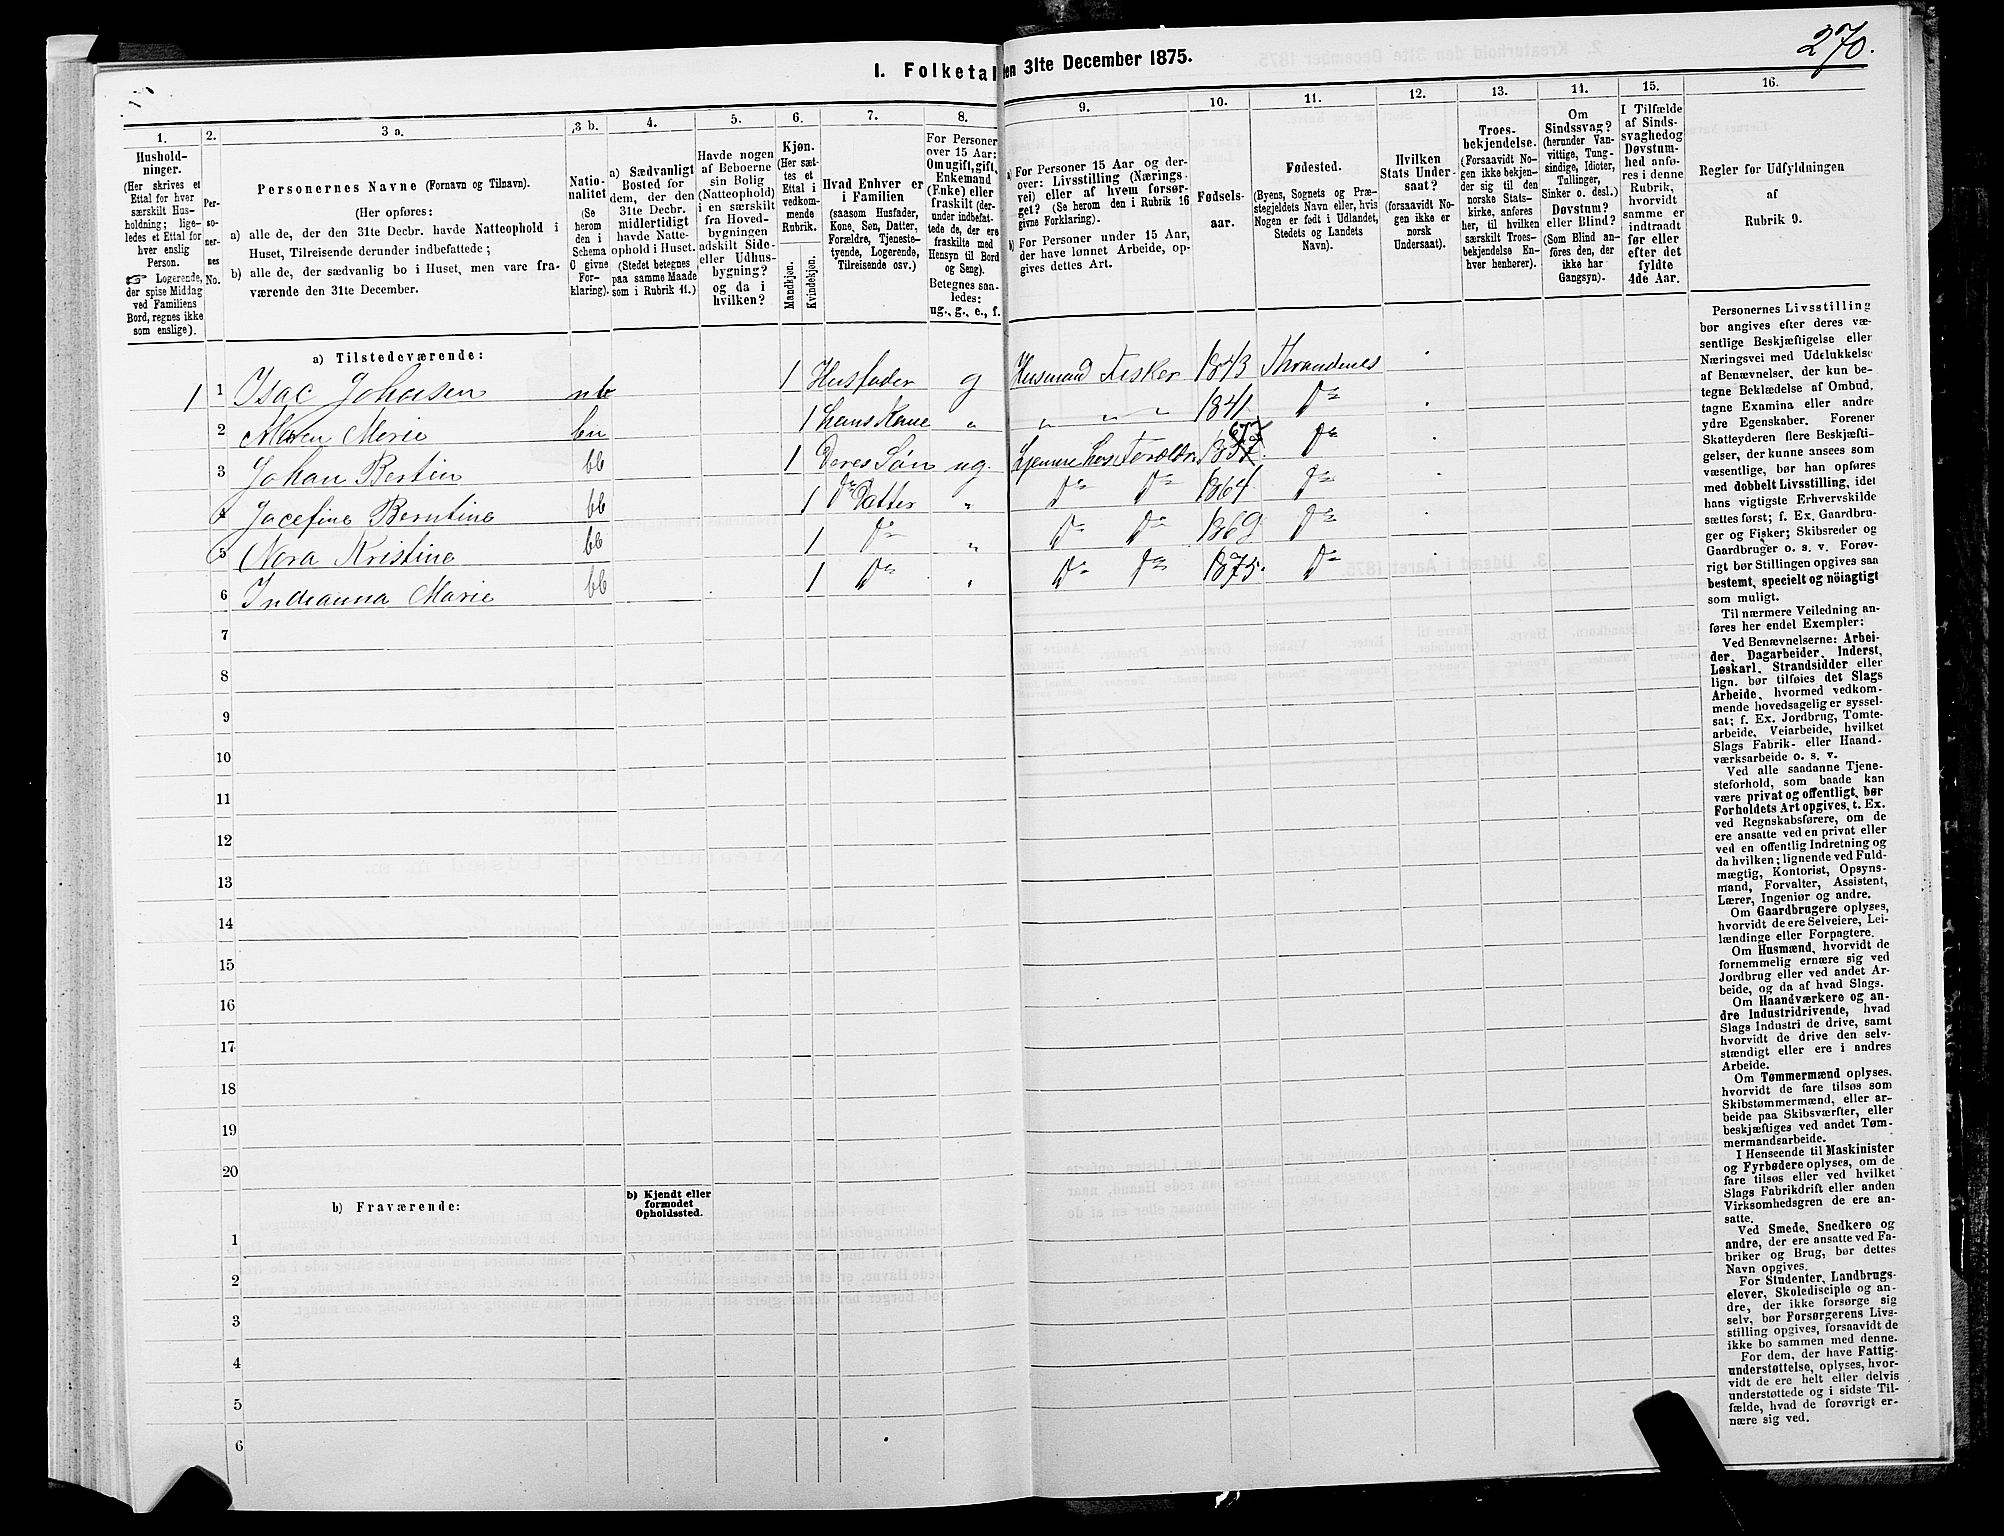 270.
I. Folketal den 31te December 1875.
1. 2. 3 a. 3 b. 4. 5. 6. 7. 8. 9. 10. 11. 12. 13. 14. 15. 16.
Hushold-
ninger.
(Her skrives et
Ettal for hver
særskilt Hus-
holdning; lige-
ledes et Ettal for
hver enslig
Person.
☞ Logerende,
der spise Middag
ved Familiens
Bord, regnes ikke
som enslige).
Per-
so-
ner-
nes
No.
Personernes Navne (Fornavn og Tilnavn).
(Her opføres:
a) alle de, der den 31te Decbr. havde Natteophold i
Huset, Tilreisende derunder indbefattede;
b) alle de, der sædvanlig bo i Huset, men vare fra-
værende den 31te December.
Natio-
nalitet
(Se
herom
den i
Schema
C givne
For-
klaring).
a) Sædvanligt
Bosted for
dem, der den
31te Decbr.
midlertidigt
havde Natte-
ophold i Huset.
(Stedet betegnes
paa samme Maade
som i Rubrik 11.)
Havde nogen
af Beboerne
sin Bolig
(Natteophold)
i en særskilt
fra Hoved-
bygningen
adskilt Side-
eller Udhus-
bygning?
og da i
hvilken?
Kjøn.
(Her sæt-
tes et
Ettal i
vedkom-
mende
Rubrik.
Mandkjøn.
Kvindekjøn.
Hvad Enhver er
i Familien
(saasom Husfader,
Kone, Søn, Datter,
Forældre, Tjeneste-
tyende, Logerende,
Tilreisende osv.)
For Personer
over 15 Aar:
Om ugift, gift,
Enkemand
(Enke) eller
fraskilt (der-
under indbefat-
tede de, der ere
fraskilte med
Hensyn til Bord
og Seng).
Betegnes saa-
ledes:
ug., g., e., f.
a) For Personer 15 Aar og der-
over: Livsstilling (Nærings-
vei) eller af hvem forsør-
get? (Se herom den i Rubrik 16
givne Forklaring).
b) For Personer under 15 Aar,
der have lønnet Arbeide, op-
gives dettes Art.
Fødsels-
aar.
Fødested.
(Byens, Sognets og Præ-
stegjeldets Navn eller, hvis
Nogen er født i Udlandet,
Stedets og Landets
Navn).
Hvilken
Stats Under-
saat?
(forsaavidt No-
gen ikke er
norsk
Undersaat).
Troes-
bekjendelse.
(Forsaavidt No-
gen ikke bekjen-
der sig til den
norske Stats-
kirke, anføres
her, til hvilken
særskilt Troes-
bekjendelse En-
hver henhører).
Om
Sindssvag?
(herunder Van-
vittige, Tung-
sindige, Idioter,
Tullinger,
Sinker o. desl.)
Døvstum?
eller Blind?
(Som Blind an-
føres den, der
ikke har
Gangsyn).
I Tilfælde
af Sinds-
svaghed og
Døvstum-
hed anfø-
res i denne
Rubrik,
hvorvidt
samme er
indtraadt
før eller
efter det
fyldte
4de Aar.
Regler for Udfyldningen
af
Rubrik 9.
a) Tilstedeværende:
1 1 Isac Johansen nb 1 Husfader g Husmand Fisker 1843 Throndenes
2 Maren Merie bn 1 hans Kone " " " " 1841 Do
3 Johan Bertin bb 1 Deres Søn ug. hjemme hos Forældr. 1857 67 Do
4 Jocefine Berntine bb 1 Do Datter " Do Do 1864 Do
5 Nora Kristine bb 1 Do " Do Do 1869 Do
6 Indianna Marie bb 1 Do " Do Do 1875. Do
7
8
9
10
11
12
13
14
15
16
17
18
19
20
b) Fraværende:
b) Kjendt eller
formodet
Opholdssted.
1
2
3
4
5
6
Personernes Livsstilling
bør angives efter deres væ-
sentlige Beskjæftigelse eller
Næringsvei med Udelukkelse
af Benævnelser, der kun be-
tegne Beklædelse af Ombud,
tagne Examina eller andre
ydre Egenskaber. Forener
Skatteyderen flere Beskjæfti-
gelser, der kunne ansees som
væsentlige, bør han opføres
med dobbelt Livsstilling, idet
hans vigtigste Erhvervskilde
sættes først; f. Ex. Gaardbru-
ger og Fisker; Skibsreder og
Gaardbruger o. s. v. Forøv-
rigt bør Stillingen opgives saa
bestemt, specielt og nöiagtigt
som muligt.
Til nærmere Veiledning an-
føres her endel Exempler:
Ved Benævnelserne: Arbei-
der, Dagarbeider, Inderst,
Løskarl, Strandsidder eller
lign. bør tilføies det Slags
Arbeide, hvormed vedkom-
mende hovedsagelig er syssel-
sat; f. Ex. Jordbrug, Tomte-
arbeide, Veiarbeide, hvilket
Slags Fabrik- eller Haand-
værksarbeide o. s. v.
Ved alle saadanne Tjene-
steforhold, som baade kan
være privat og offentligt, bør
Forholdets Art opgives, t. Ex.
ved Regnskabsførere, om de
ere ansatte ved en privat eller
ved en offentlig Indretning og
da hvilken; lignende ved Fuld-
mægtig, Kontorist, Opsyns-
mand, Forvalter, Assistent,
Lærer, Ingeniør og andre.
Om Gaardbrugere oplyses,
hvorvidt de ere Selveiere, Lei-
lændinge eller Forpagtere.
Om Husmænd, hvorvidt de
fornemmelig ernære sig ved
Jordbrug eller ved andet Ar-
beide, og da af hvad Slags.
Om Haandværkere og an-
dre Industridrivende, hvad
Slags Industri de drive, samt
hvorvidt de drive den selv-
stændigt eller ere i andres
Arbeide.
Om Tømmermænd oplyses,
hvorvidt de fare tilsøs som
Skibstømmermænd, eller ar-
beide paa Skibsværfter, eller
beskjæftiges ved andet Tøm-
mermandsarbeide.
I Henseende til Maskinister
og Fyrbødere oplyses, om de
fare tilsøs eller ved hvilket
Slags Fabrikdrift eller anden
Virksomhedsgren de ere an-
satte.
Ved Smede, Snedkere og
andre, der ere ansatte ved Fa-
briker og Brug, bør dettes
Navn opgives.
For Studenter, Landbrugs-
elever, Skoledisciple og an-
dre, der ikke forsørge sig
selv, bør Forsørgerens Livs-
stilling opgives, forsaavidt de
ikke bo sammen med denne.
For dem, der have Fattig-
understøttelse, oplyses, hvor-
vidt de ere helt eller delvis
understøttede og i sidste Til-
fælde, hvad de forøvrigt er-
nære sig ved.